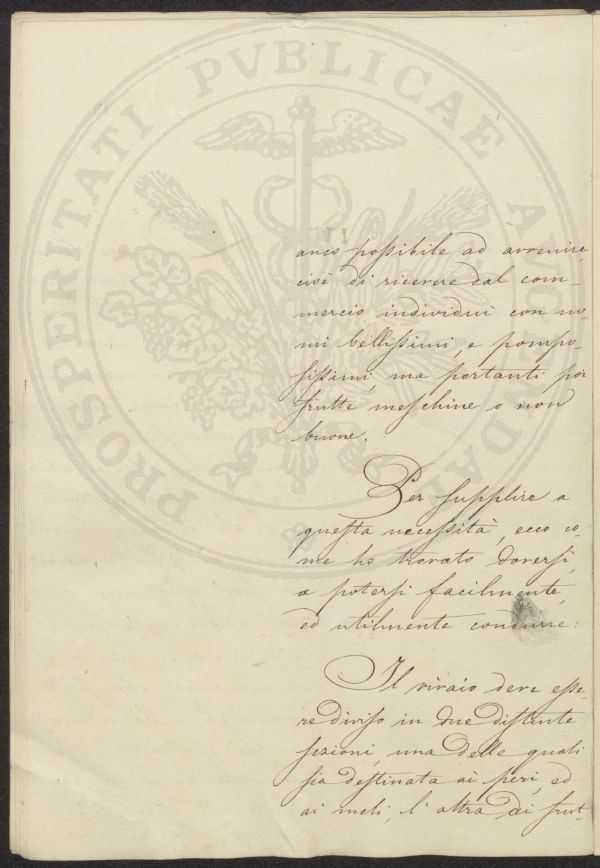 PROSPERITATI PVBLICAE AVGENDAE
anco possibile ad avvenire,
cioè di ricevere dal com-
mercio individui con no-
mi bellissimi, e pompo-
sissimi, ma portanti poi
frutte meschine o non
buone.
Per supplire a
questa necessità, ecco co-
me ho trovato doversi,
e potersi facilmente,
ed utilmente condurre:
Il vivaio deve esse-
re diviso in due distinte
sezioni, una delle quali
sia destinata ai peri, ed
ai meli, l'altra ai frut-